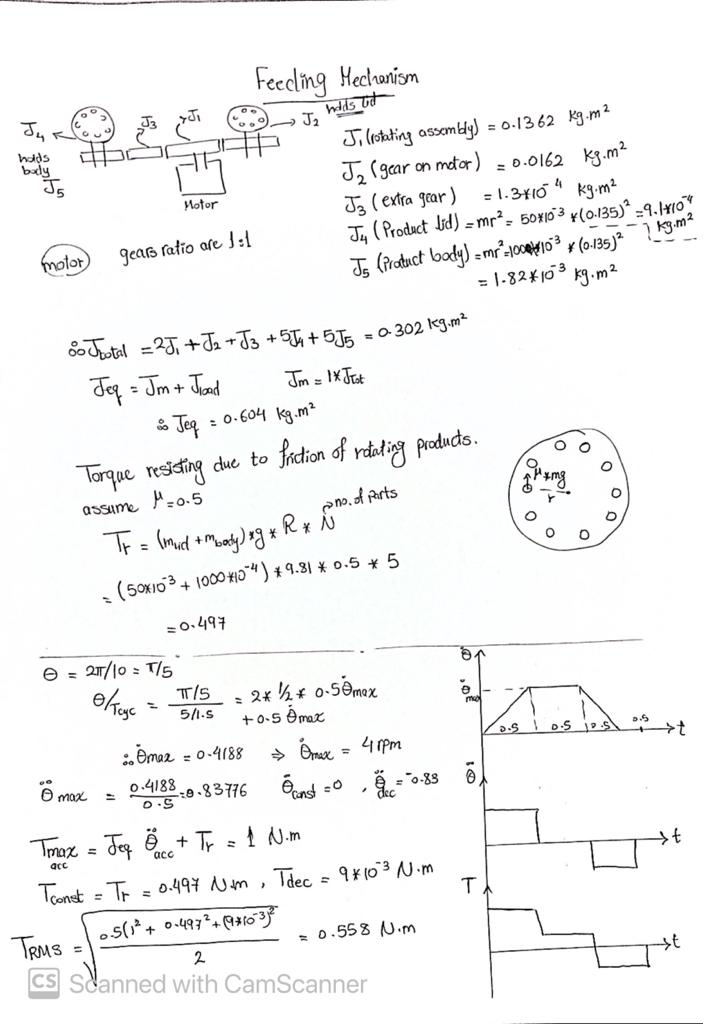 Feeding Mechanism
holds lid
J4
J3
J1
J2
holds
body
J5
Motor
J1 (rotating assembly) = 0.1362 kg.m²
J2 (gear on motor) = 0.0162 kg.m²
J3 (extra gear) = 1.3*10⁻⁴ kg.m²
J4 (Product lid) = mr² = 50*10⁻³ *(0.135)² = 9.1*10⁻⁴ kg.m²
J5 (Product body) = mr² = 100*10⁻³ * (0.135)²
= 1.82*10⁻³ kg.m²
motor gears ratio are 1:1
∴ Jtotal = 2J1 + J2 + J3 + 5J4 + 5J5 = 0.302 kg.m²
Jeq = Jm + Jload Jm = 1*Jtot
∴ Jeq = 0.604 kg.m²
Torque resisting due to friction of rotating products.
assume μ=0.5
Tr = (mlid + mbody)*g * R * N no. of parts
= (50*10⁻³ + 1000*10⁻⁴) * 9.81 * 0.5 * 5
= 0.497
μ*mg
r
θ = 2π/10 = π/5
θ/Tcyc = π/5 / 5/1.5 = 2* 1/2 * 0.5 θ̇max
+ 0.5 θ̇max
∴ θ̇max = 0.4188 ⇒ θ̇max = 4 rpm
θ̈max = 0.4188 / 0.5 = 0.83776 θ̈const = 0 , θ̈dec = -0.83
Tmax acc = Jeq θ̈acc + Tr = 1 N.m
Tconst = Tr = 0.497 N.m , Tdec = 9*10⁻³ N.m
TRMS = √(0.5(1² + 0.497² + (9*10⁻³)²) / 2) = 0.558 N.m
θ̇
θ̇max
0.5 0.5 0.5 0.5 t
θ̈
t
T
t
CS Scanned with CamScanner